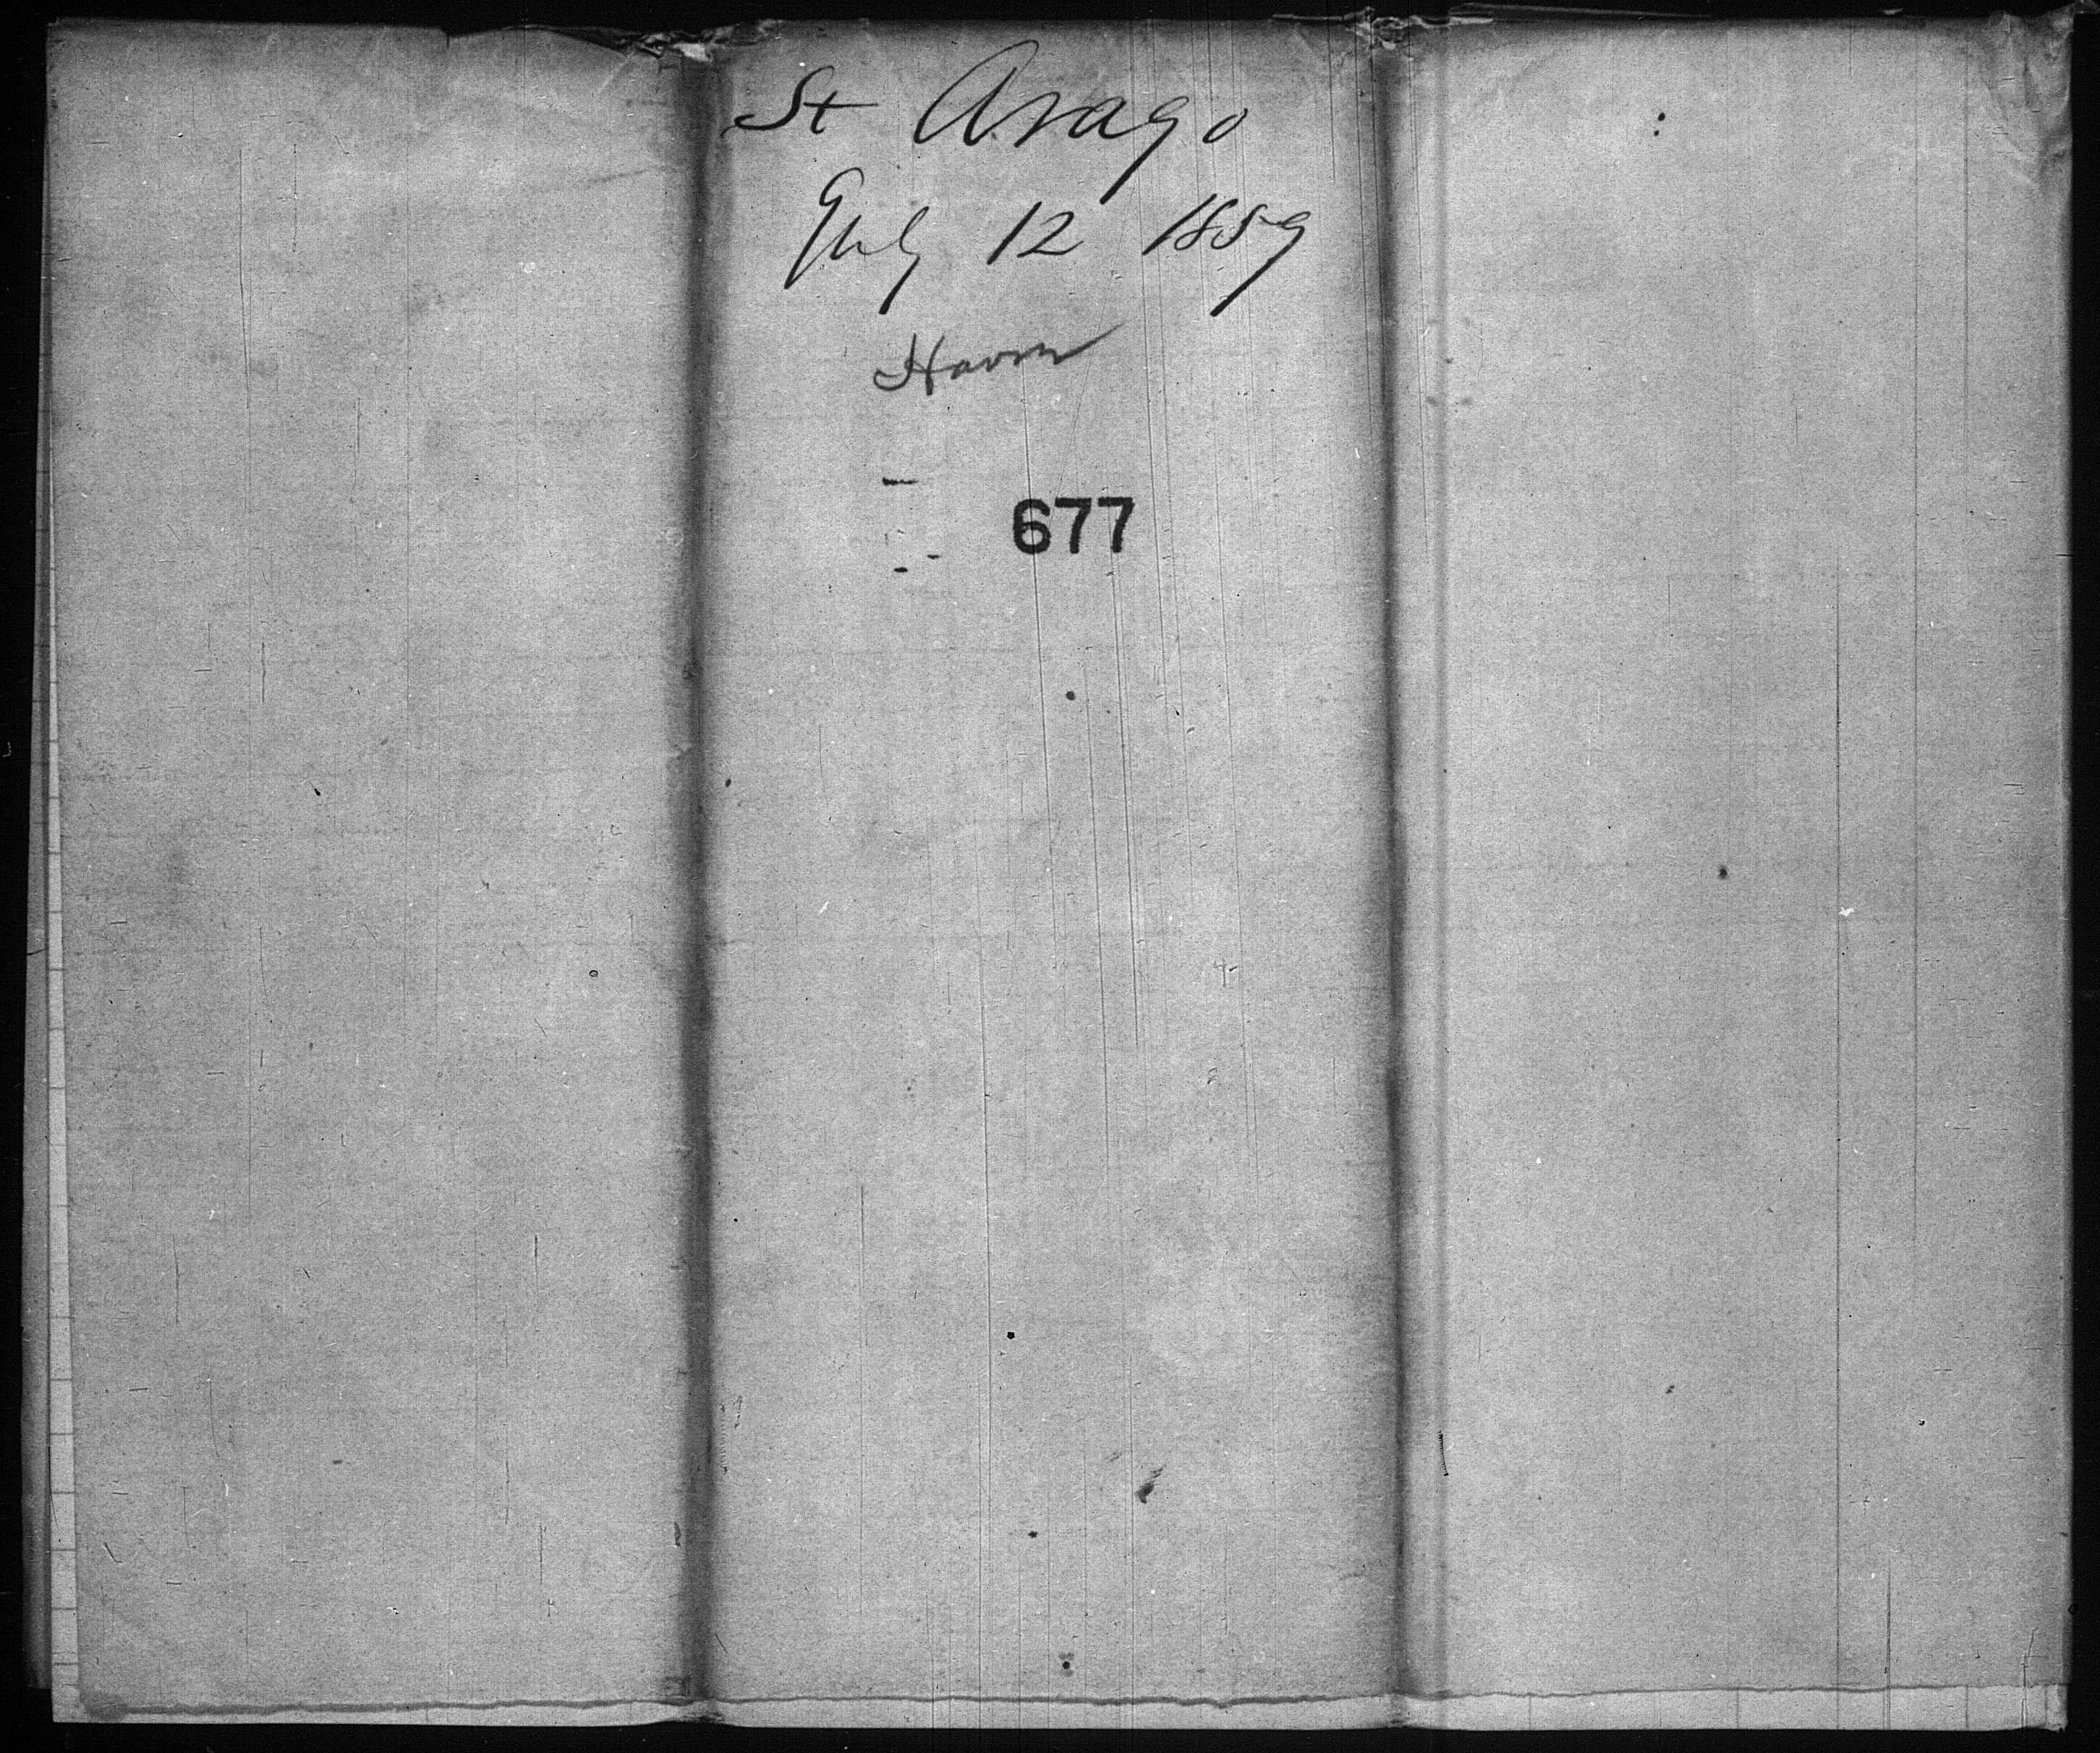 St Arago
July 12 1859
Havre
677